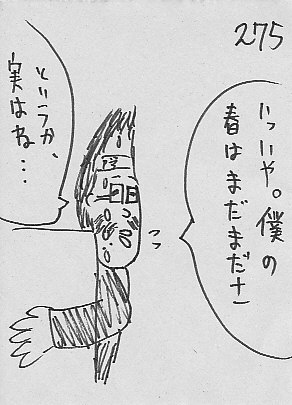 275
いいや。僕の
春はまだまださ
というか、
実はね…